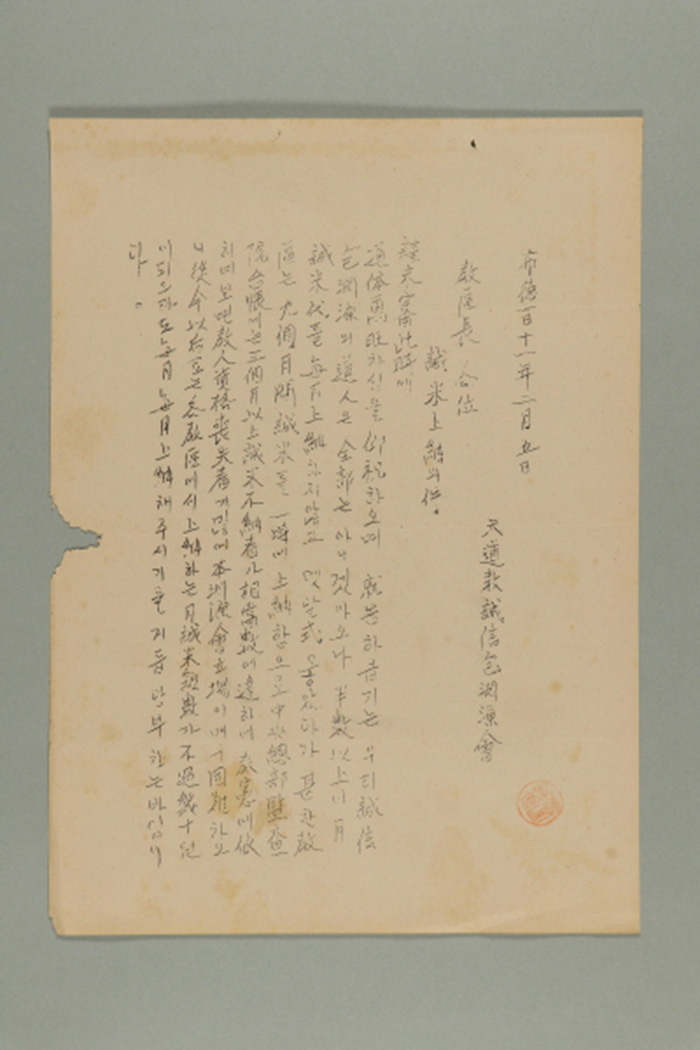 布德百十一年二月五日
天道教誠信包淵源會
教區長 各位
誠米上納의件.
謹未審此時에
道体萬旺하신을 仰祝하오며 就告하올기는 우리誠信
包淵源의 道人은 全部는 아니겟마오나 半數以上이 月
誠米代를 每月上納하지않고 몟달式 몰었다가 甚한敎
區는 九個月間誠米를 一時에 上納함으로 中央總部監査
院台帳에는 三個月以上誠米不納者가 相當數에 達하니 敎憲에依
하여 보면 敎人資格喪失者가 많애 本淵源會立場이 매우 困難하오
니 從今以后로는 各敎區에서 上納하는 月誠米額數가 不過幾十원
이되드래도 每月每月上納해주시기를 거듭 당부하는바입니
다.